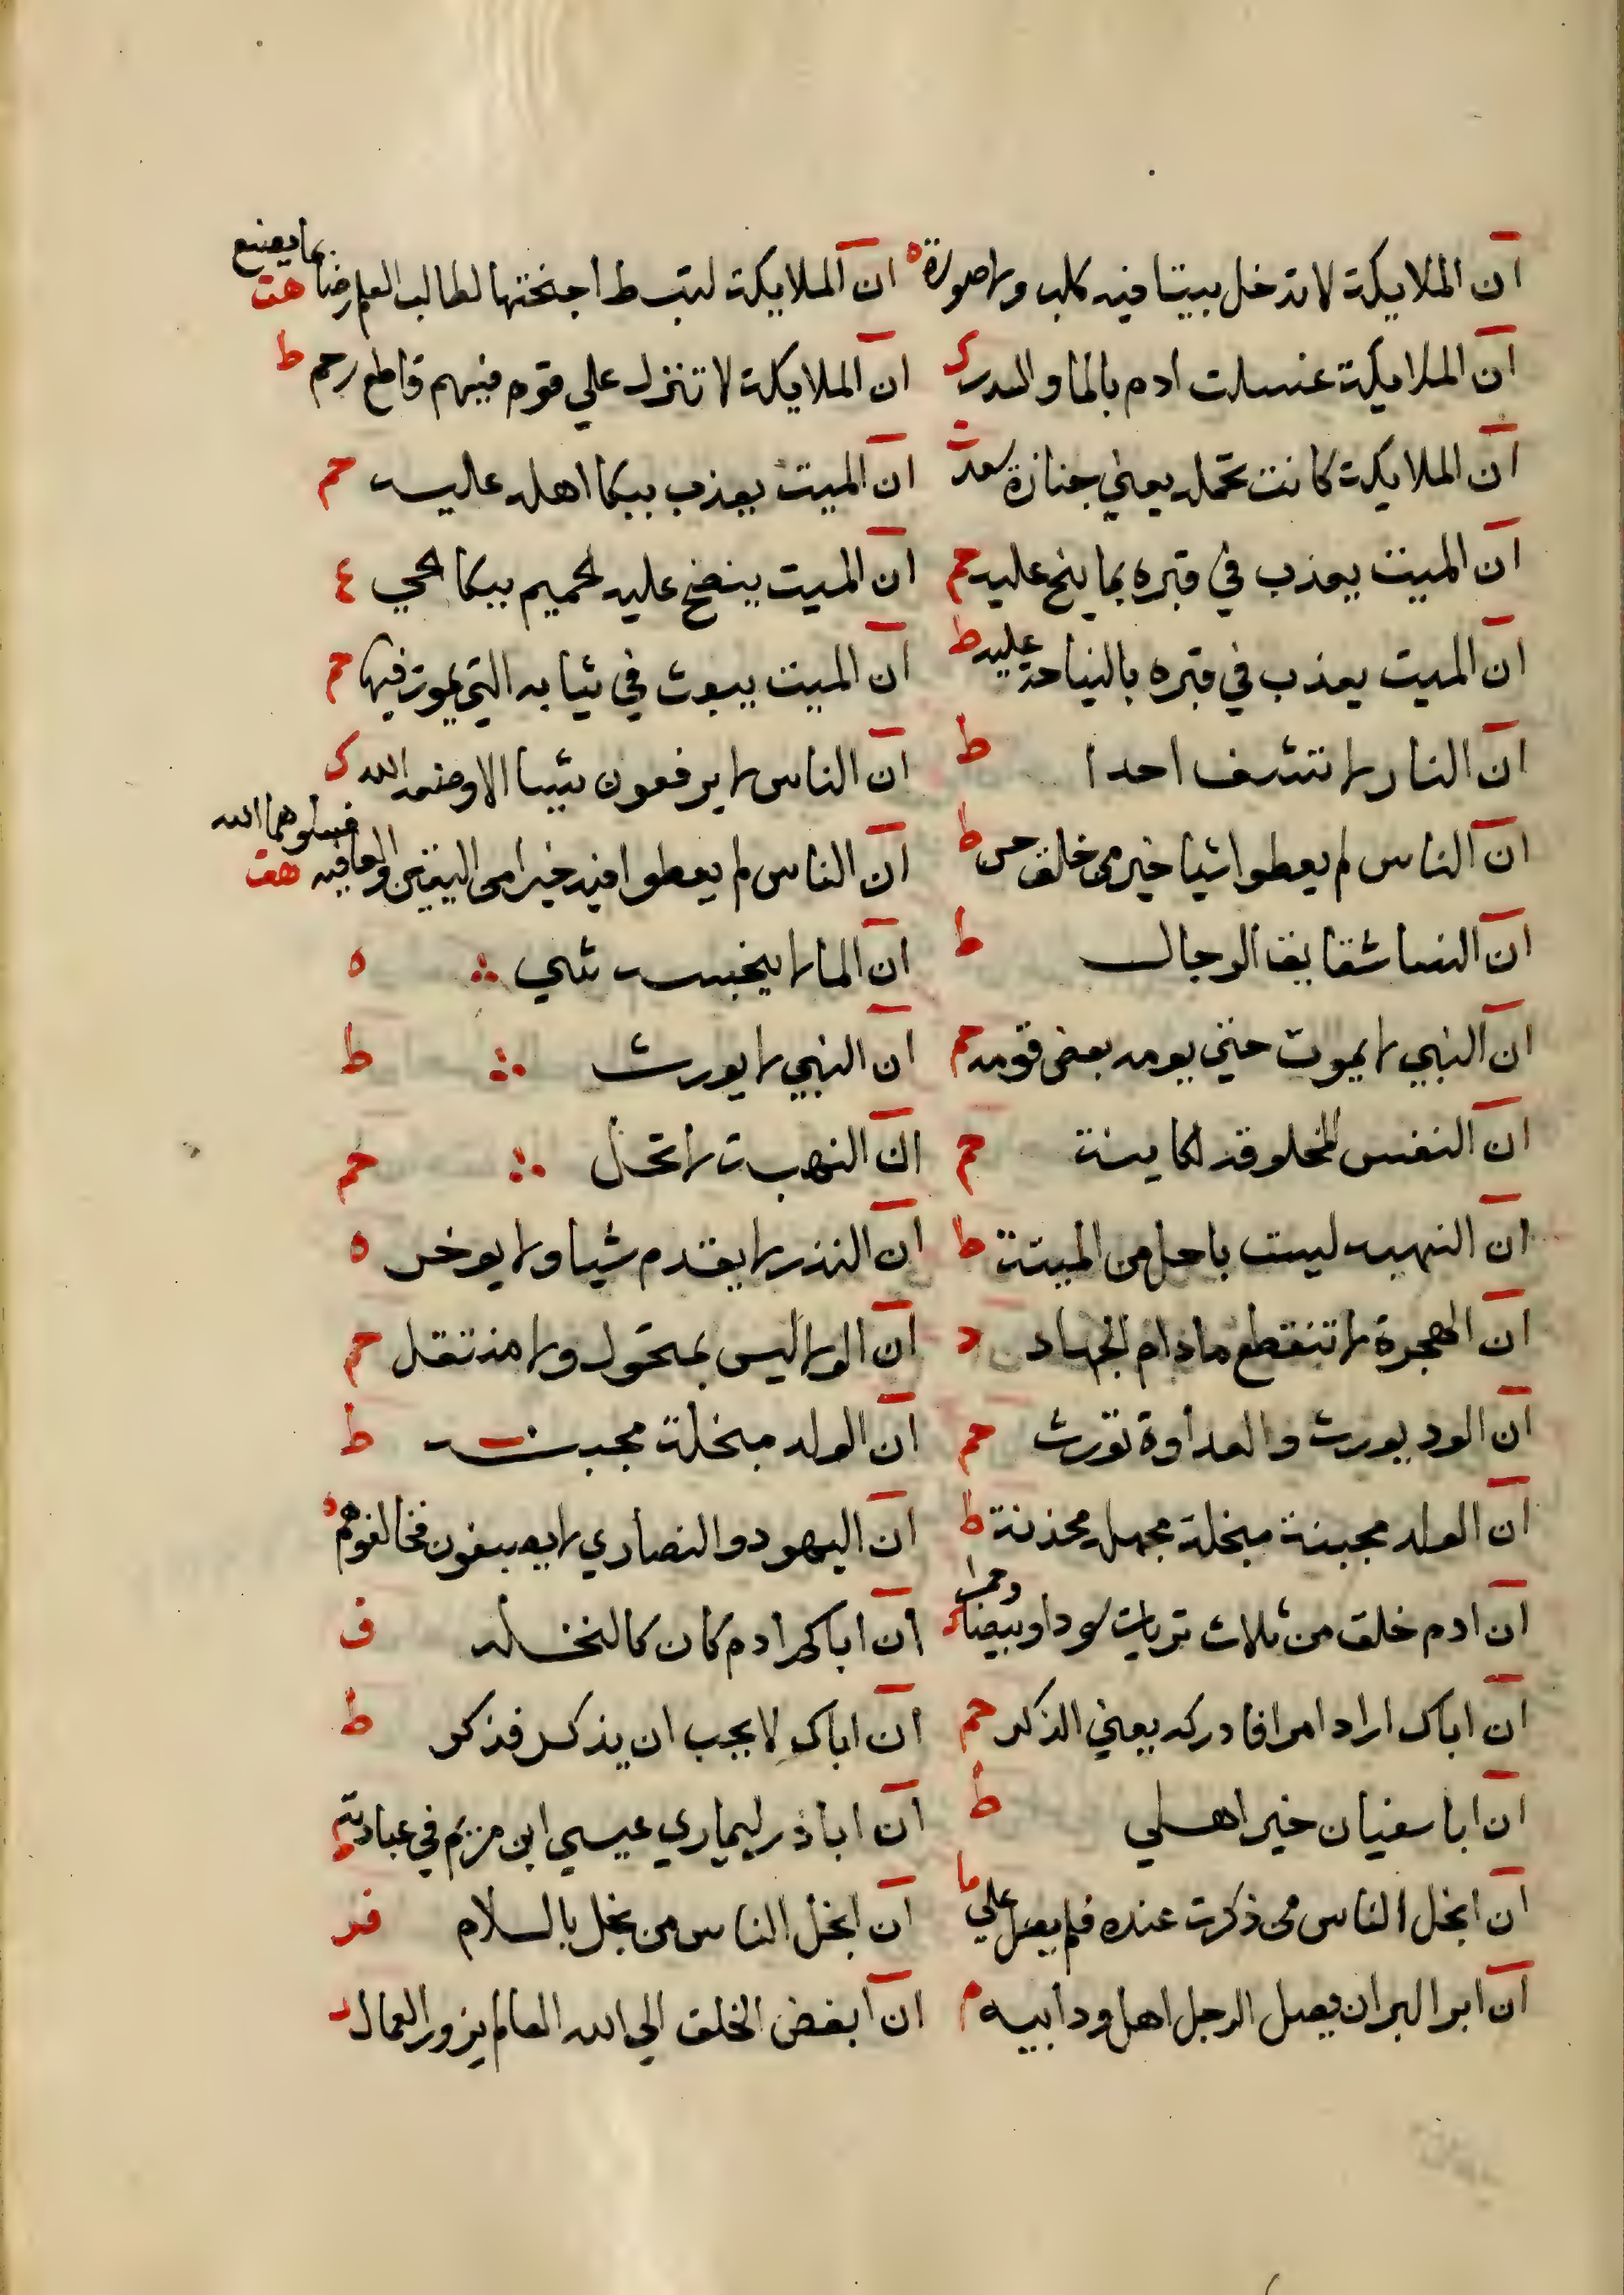 ان الملايكة لا تدخل بيتا فيه كلب ولا صورة ه
ان الملايكة لتبسط اجنحتها لطالب العلم رضا بما يصنع هق
ان الملايكة غسلت ادم بالما والسدر ك
ان الملايكة لا تنزل علي قوم فيهم قاطع رحم ط
ان الملايكة كانت تحمله يعني جنازة سعد ت
ان الميت يعذب ببكا اهله عليه حم
ان الميت يعذب في قبره بما ينح عليه حم
ان الميت ينضح عليه الحميم ببكا الحي ع
ان الميت يعذب في قبره بالنياحة عليه ط
ان الميت يبعث في ثيابه التي يموت فيها حم
ان النار لا تشف احدا ط
ان الناس لا يرفعون شيا الا وضعه الله ك
ان الناس لم يعطوا شيا خير من خلق حسن ط
ان الناس لم يعطوا فيه خيرا من اليقين والعافيه فسلوهما الله هق
ان النسا شقايق الرجال ط
ان الما لا ينجسه شي ه
ان النبي لا يموت حتي يومه بعض قومه حم
ان النبي لا يورث ط
ان النفس المخلوقه لكاينة حم
ان النهبة لا تحل حم
ان النهبه ليست باحل من الميتة ط
ان النذر لا يقدم شيا ولا يوخر ه
ان الهجرة لا تنقطع ما دام الجهاد د
ان الولا ليس بمتحول ولا منتقل حم
ان الود يورث والعداوة تورث حم
ان الولد مبخلة مجبنة ط
ان الولد مجبنة مبخلة مجهله محزنة ط
ان اليهود والنصاري لا يصبغون فخالفوهم ه
ان ادم خلق من ثلاث تربات سودا وبيضا وحمرا
ان اباكم ادم كان كالنخله ف
ان اباك اراد امرا فادركه يعني الذكر حم
ان اباك لا يحب ان يذكر فذكر ط
ان ابا سفيان خير اهلي ط
ان ابا ذر ليباري عيسي ابن مريم في عبادته ط
ان ابخل الناس من ذكرت عنده فلم يصل علي ما
ان ابخل الناس من بخل بالسلام فر
ان ابر البر ان يصل الرجل اهل ود ابيه م
ان ابغض الخلق الي الله العالم يزور العمال